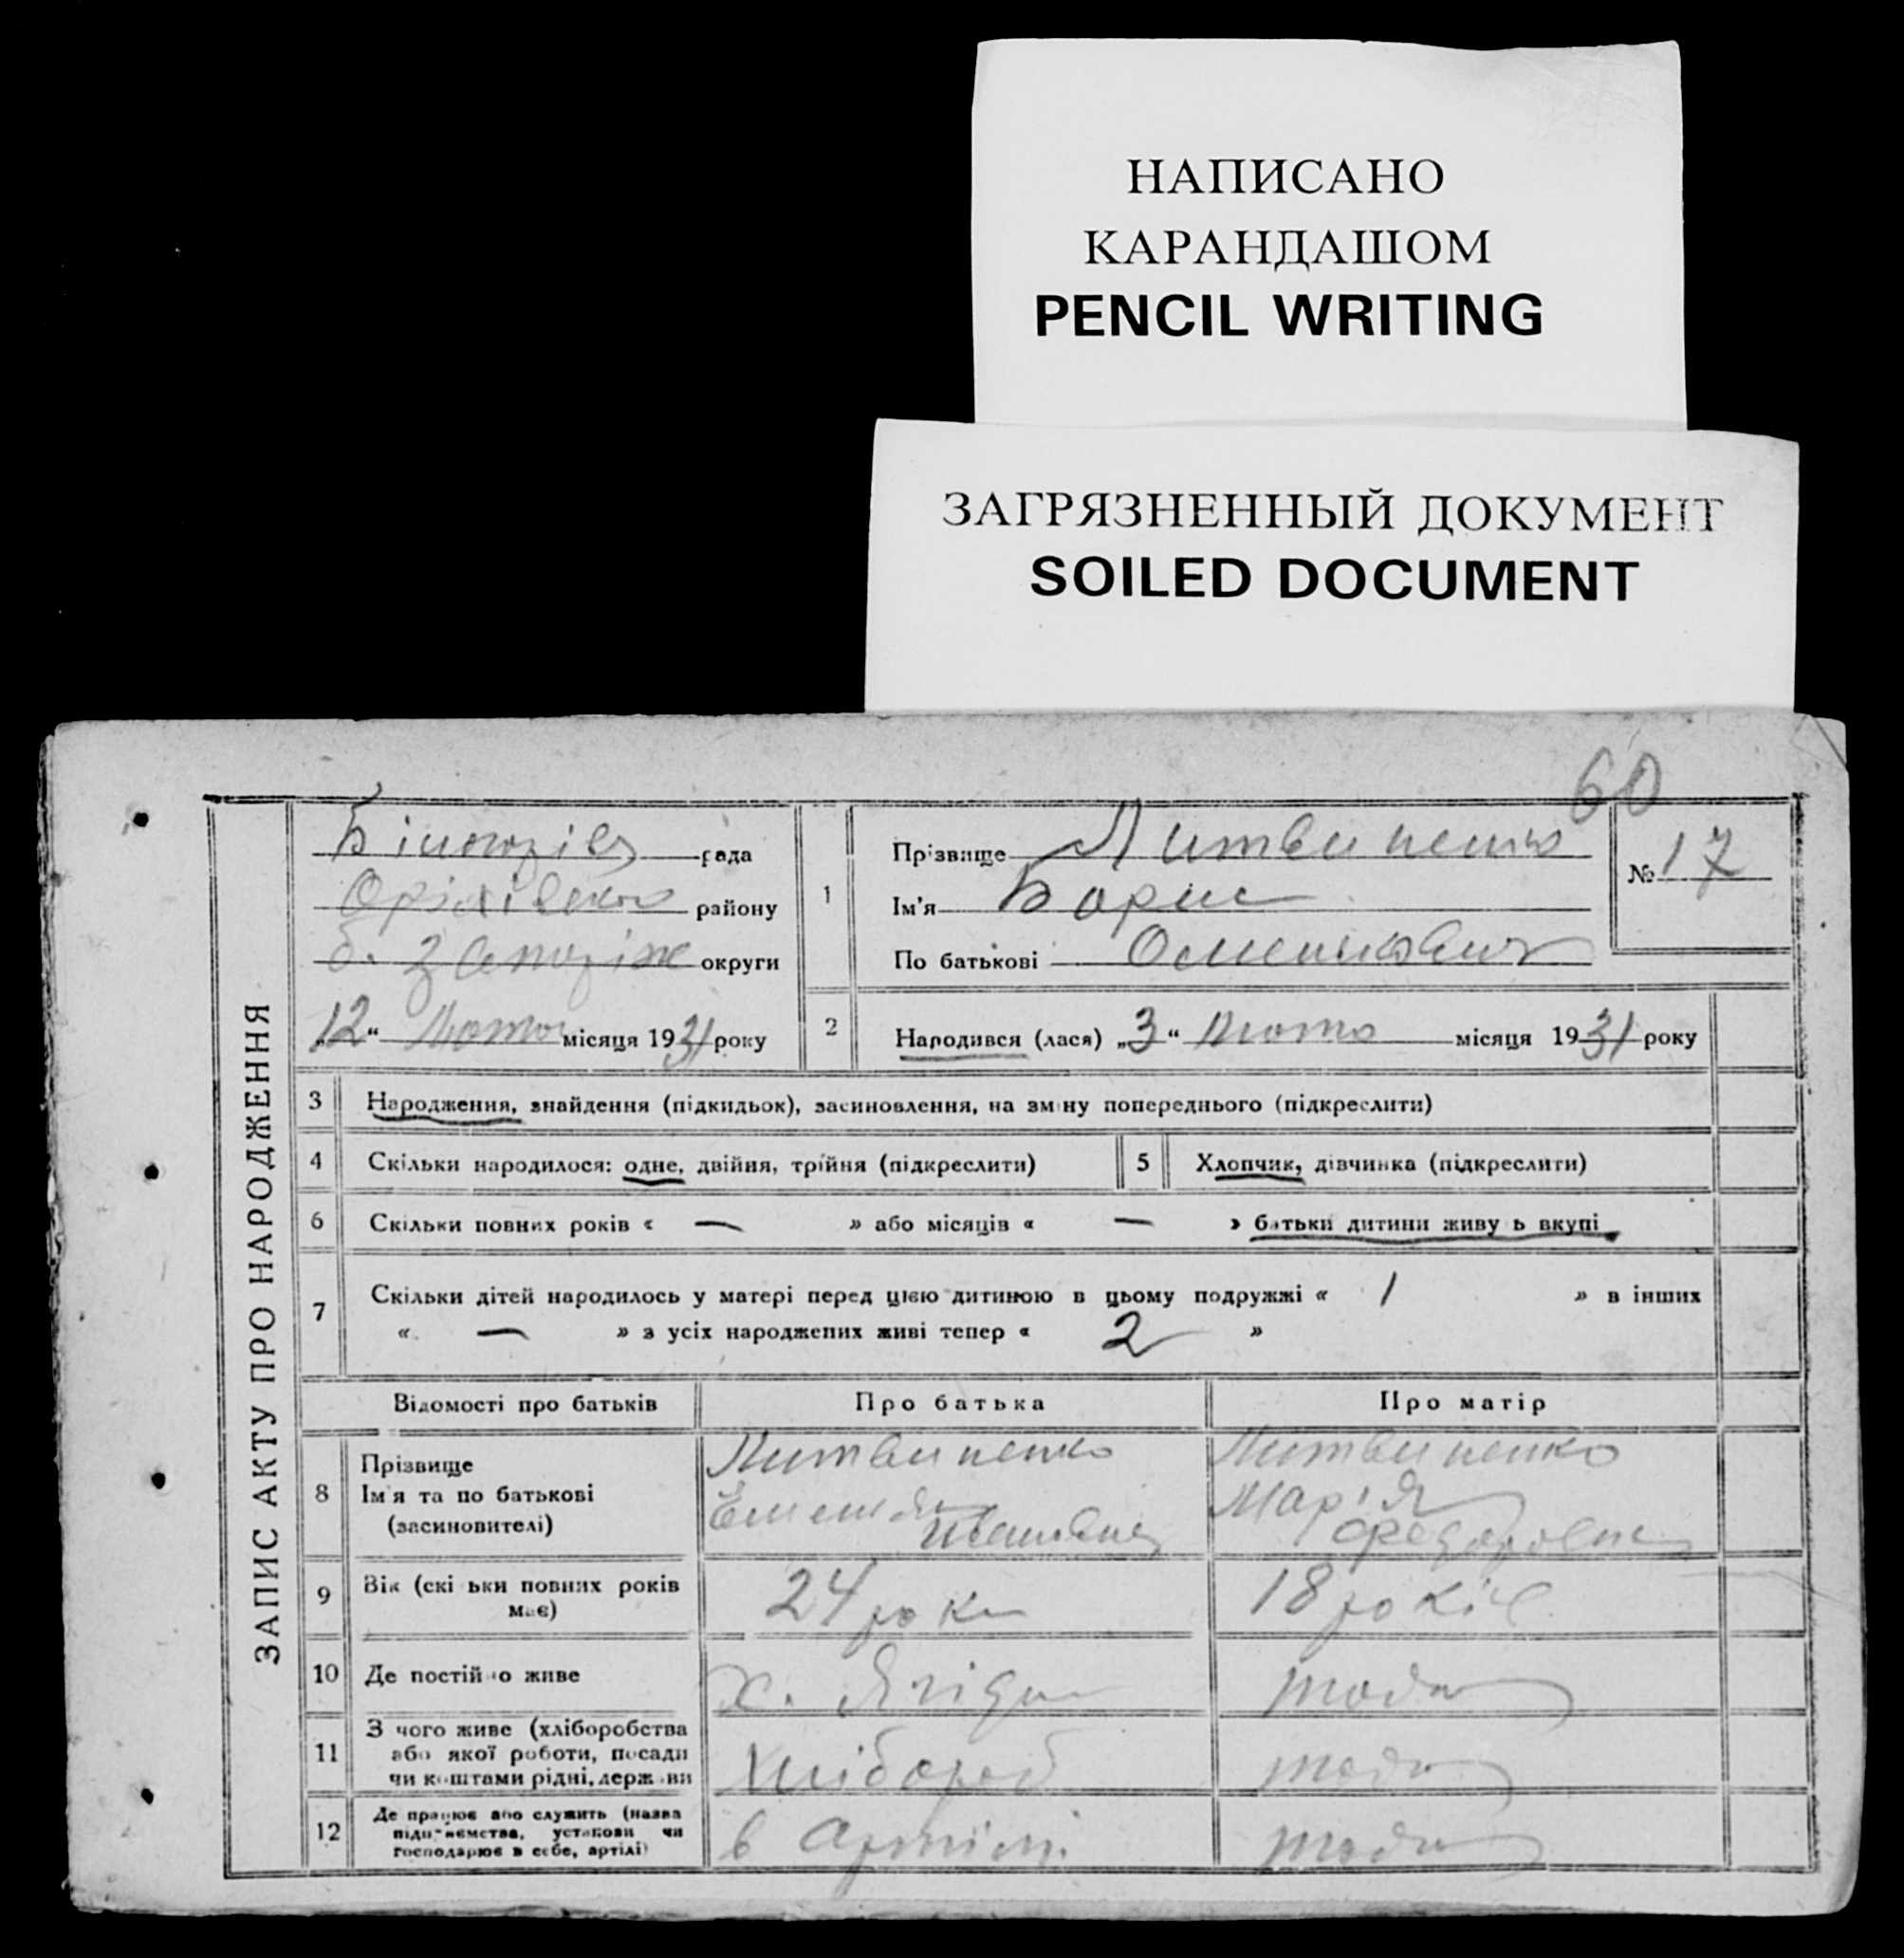 НАПИСАНО
КАРАНДАШОМ
PENCIL WRITING
ЗАГРЯЗНЕННЫЙ ДОКУМЕНТ
SOILED DOCUMENT
60
ЗАПИС АКТУ ПРО НАРОДЖЕННЯ
рада
Оріхівсько району
б. Запоріж округи
„12“ Лютого місяця 1931 року
1
Прізвище Литвиненко
Ім'я Борис
По батькові
№ 17
2
Народився (лася) „3“ Люто місяця 1931 року
3 Народження, знайдення (підкидьок), засиновлення, на зміну попереднього (підкреслити)
4 Скільки народилося: одне, двійня, трійня (підкреслити)
5 Хлопчик, дівчинка (підкреслити)
6 Скільки повних років « — » або місяців « — » батьки дитини живуть вкупі
7 Скільки дітей народилось у матері перед цією дитиною в цьому подружжі « 1 » в інших
« — » з усіх народжених живі тепер « 2 »
Відомості про батьків Про батька Про матір
8 Прізвище
Ім'я та по батькові
(засиновителі)
Литвиненко
Литвиненко
Марія
Федоровна
9 Вік (скільки повних років
має)
24 роки 18 років
10 Де постійно живе
х. тода
11 З чого живе (хліборобства
або якої роботи, посади
чи коштами рідні, держави
Хлібороб тода
12 Де працює або служить (назва
підприємства, установи чи
господарює в себе, артілі)
в Артілі тода